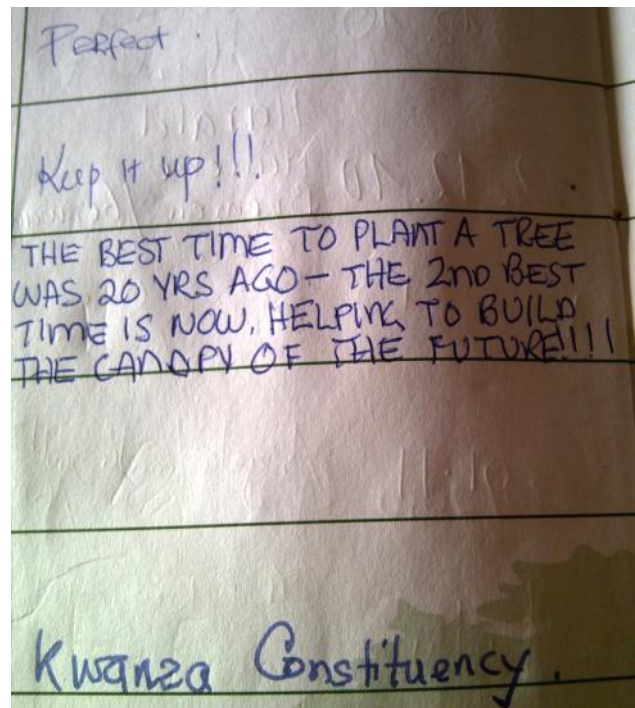 Perfect.
Keep it up!!!
THE BEST TIME TO PLANT A TREE
WAS 20 YRS AGO - THE 2ND BEST
TIME IS NOW, HELPING TO BUILD
THE CANOPY OF THE FUTURE!!!
Kwanza Constituency.